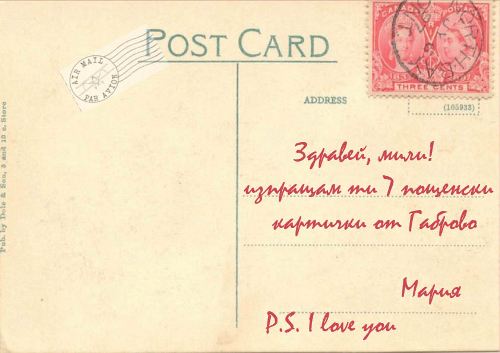 POST CARD
AIR MAIL
PAR AVION
THREE CENTS
ADDRESS
(105933)
Pub. by Dole & Son, 5 and 10 c. Store
Здравей, мили!
изпращам ти 7 пощенски
картички от Габрово
Мария
P.S. I love you